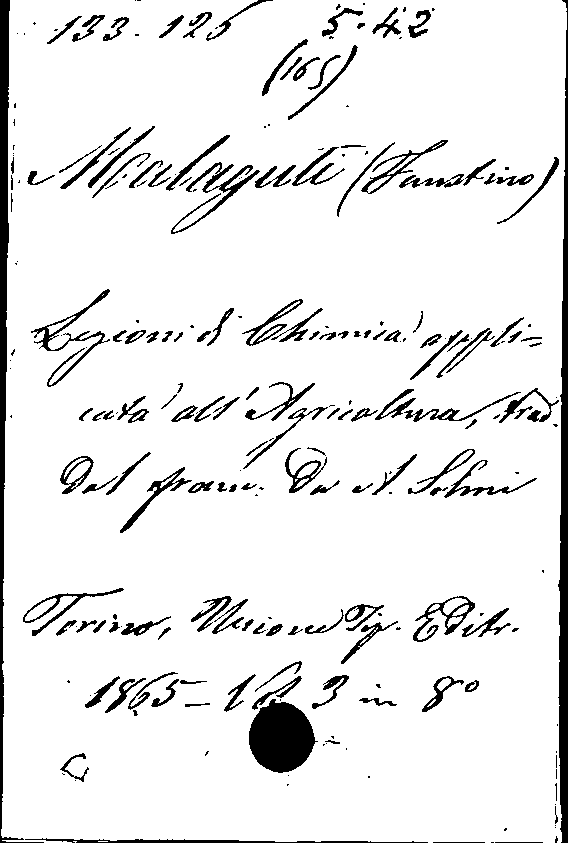 133. 125 5. 42
(165)
Malaguti (Faustino)
Lezioni di Chimica appli=
cata all'Agricoltura, trad.
dal franc. da A. Selmi
Torino, Unione Tip. Editr.
1865 - Vol. 3 in 8º